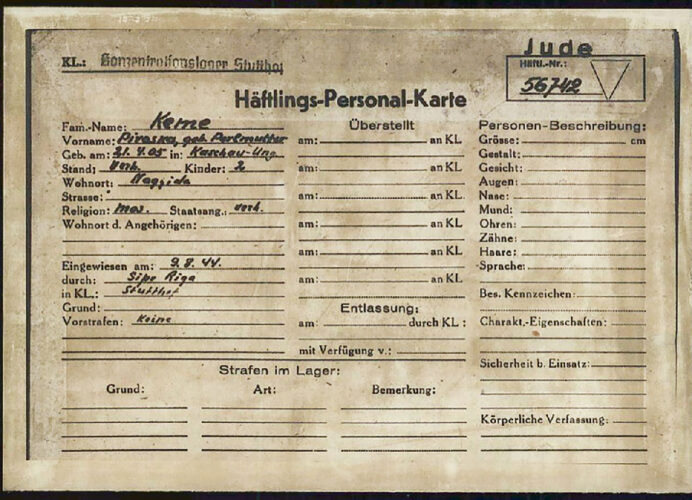 Jude
KL.: Konzentrationslager Stutthof
Häftl.-Nr.:
56742
Häftlings-Personal-Karte
Fam.-Name: Keme
Vorname: Piroska, geb. Perlmutter
Geb. am: 21.4.05 in: Kaschau-Ung.
Stand: verh. Kinder: 2
Wohnort: Nagyida
Strasse:
Religion: mos. Staatsang.:
Wohnort d. Angehörigen:
Eingewiesen am: 9.8.44.
durch: Sipo Riga
in KL.: Stutthof
Grund:
Vorstrafen: Keine
Überstellt
am: an KL
am: an KL
am: an KL
am: an KL
am: an KL
am: an KL
Entlassung:
am: durch KL:
mit Verfügung v.:
Personen-Beschreibung:
Grösse: cm
Gestalt:
Gesicht:
Augen:
Nase:
Mund:
Ohren:
Zähne:
Haare:
Sprache:
Bes. Kennzeichen:
Charakt.-Eigenschaften:
Sicherheit b. Einsatz:
Körperliche Verfassung:
Strafen im Lager:
Grund: Art: Bemerkung: